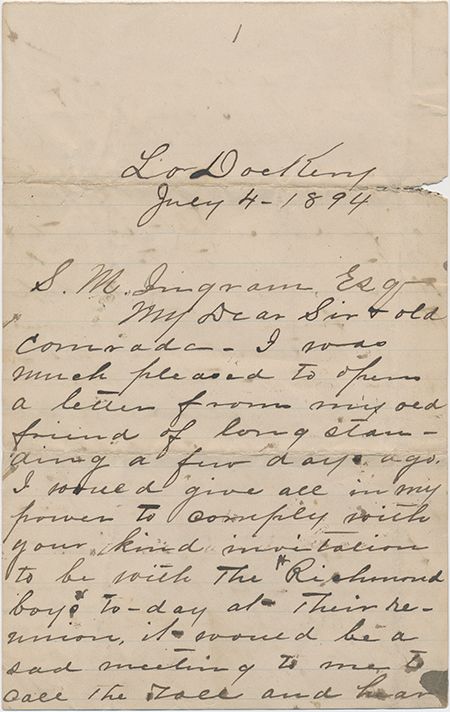 1
Lo Dockery
July 4 - 1894
S. M. Ingram Esq
My Dear Sir & old
Comrade - I was
much pleased to open
a letter from my old
friend of long stan-
ding a few days ago.
I would give all in my
power to comply with
your kind invitation
to be with the "Richmond
boys" to-day at their re-
union, it would be a
sad meeting to me to
call the roll and hear